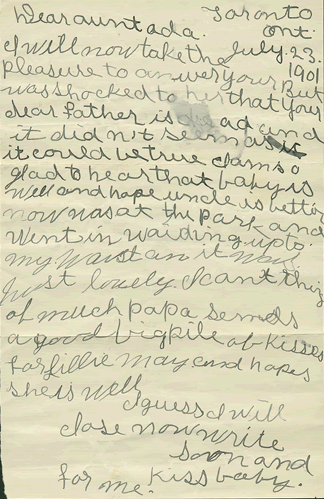 Dear aunt ada. Toronto
Ont.
I will now take the July. 23.
pleasure to anwer your But 1901
was shocked to her that your
dear father is dead and
it didn't seem as if
it could be true I am so
glad to hear that baby is
well and hope uncle is better
now I was at the park and
Went in waiding up to
my Waist an it was
just lovely. I cant thing
of much papa sends
a good big pile of kisses
for Lillie May and hopes
she is well
I guess I will
close now write
soon and
for me. Kiss baby.